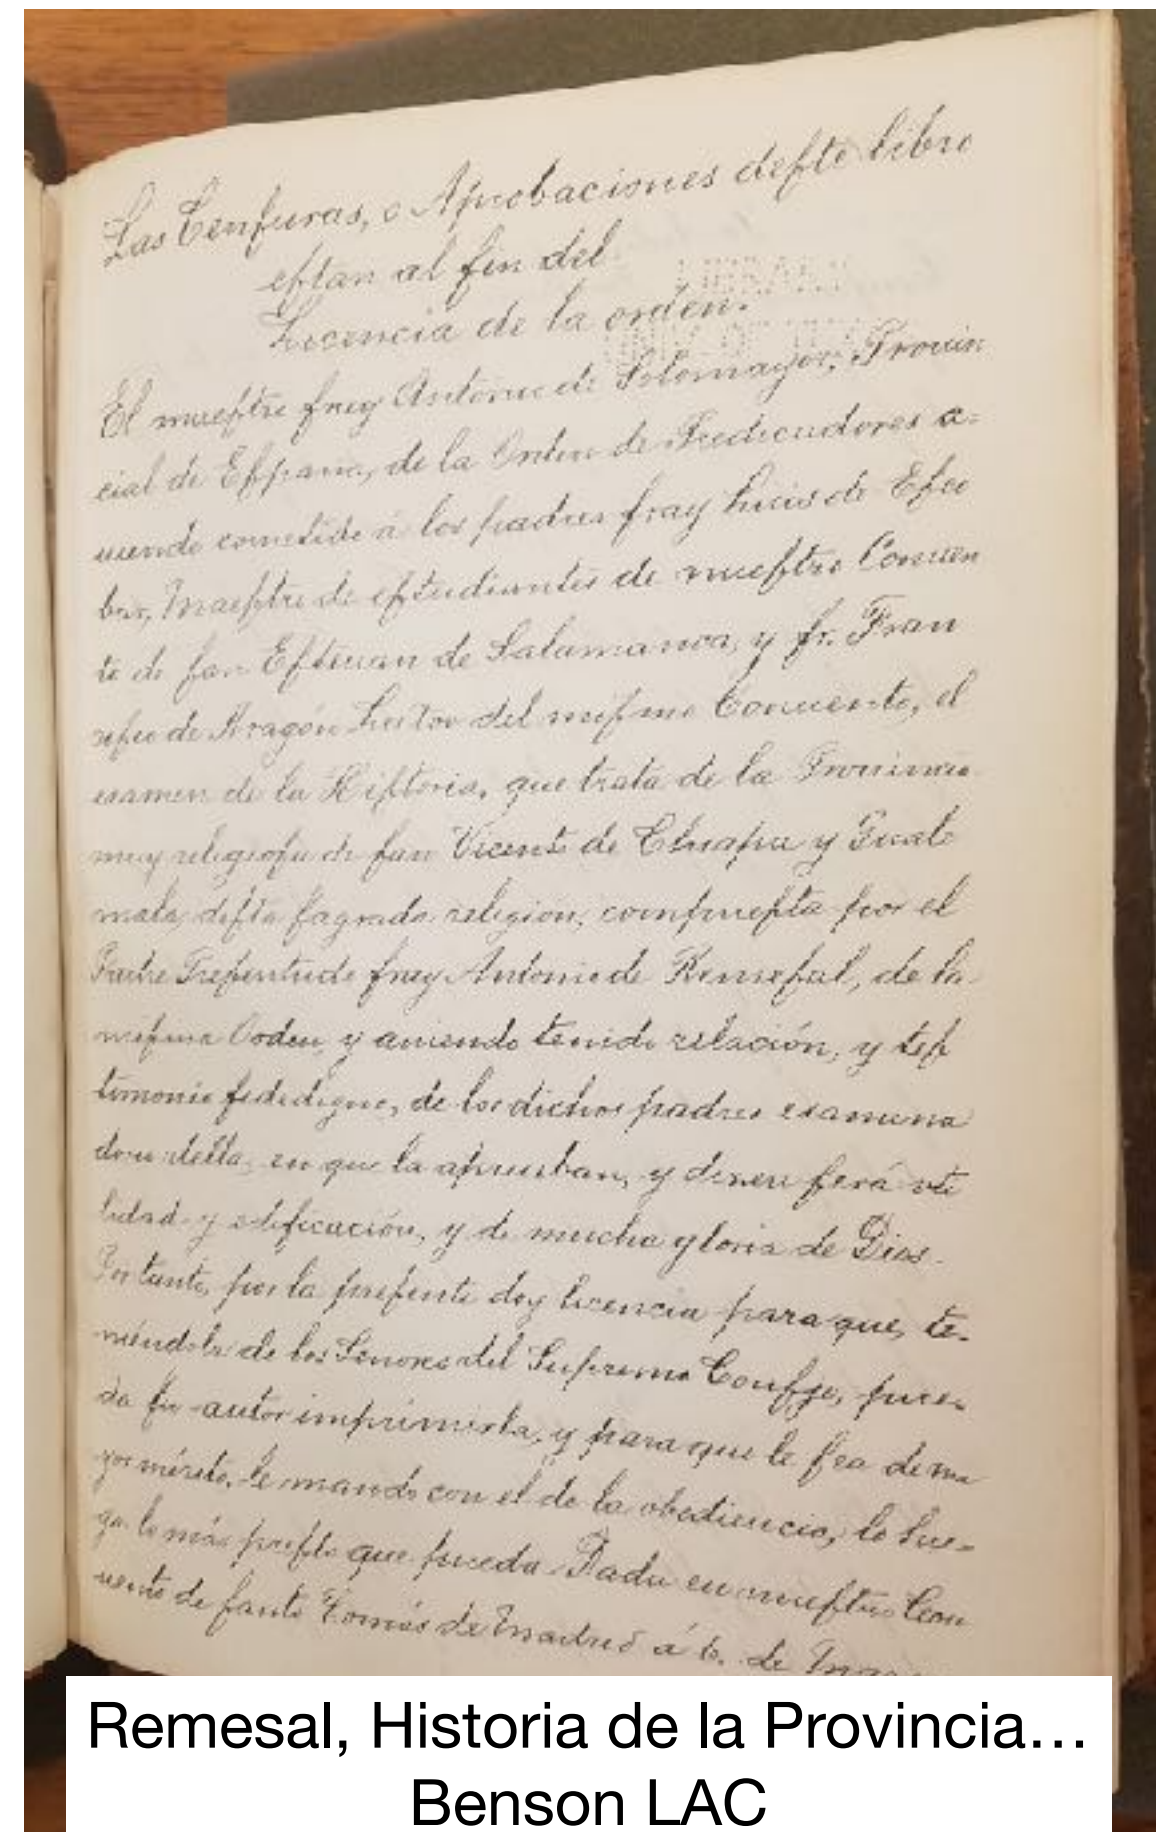 Las Cenfuras, o Aprobaciones defte libro
eftan al fin del
Licencia de la orden.
El maeftro fray Antonio de Sotomayor, Provin
cial de Efpana, de la Orden de Predicadores a-
uiendo cometido á los padres fray Luis de Efco
bar, Maeftro de eftudiantes de nueftro Conuen
to de fan Efteuan de Salamanca, y fr. Fran
cifco de Aragón Lector del mifmo Conuento, el
examen de la Hiftoria, que trata de la Prouincia
muy religiofa de fan Vicente de Chiapa y Guate
mala, defta fagrada religion, compuefta por el
Padre Prefentado fray Antonio de Remefal, de la
mifma Orden, y auiendo tenido relación, y tef
timonio fidedigno, de los dichos padres examina
dores della, en que la aprueban, y dizen ferá vti
lidad y edificación, y de mucha gloria de Dios.
Por tanto, por la prefente doy licencia para que, te-
niéndola de los Senores del Supremo Confejo, pue-
da fu autor imprimirla, y para que le fea de ma
yor mérito, le mando con el de la obediencia, lo hae-
ga lo más prefto que pueda. Dada en nueftro Con
uento de fanto Tomás de Madrid á de
Remesal, Historia de la Provincia…
Benson LAC